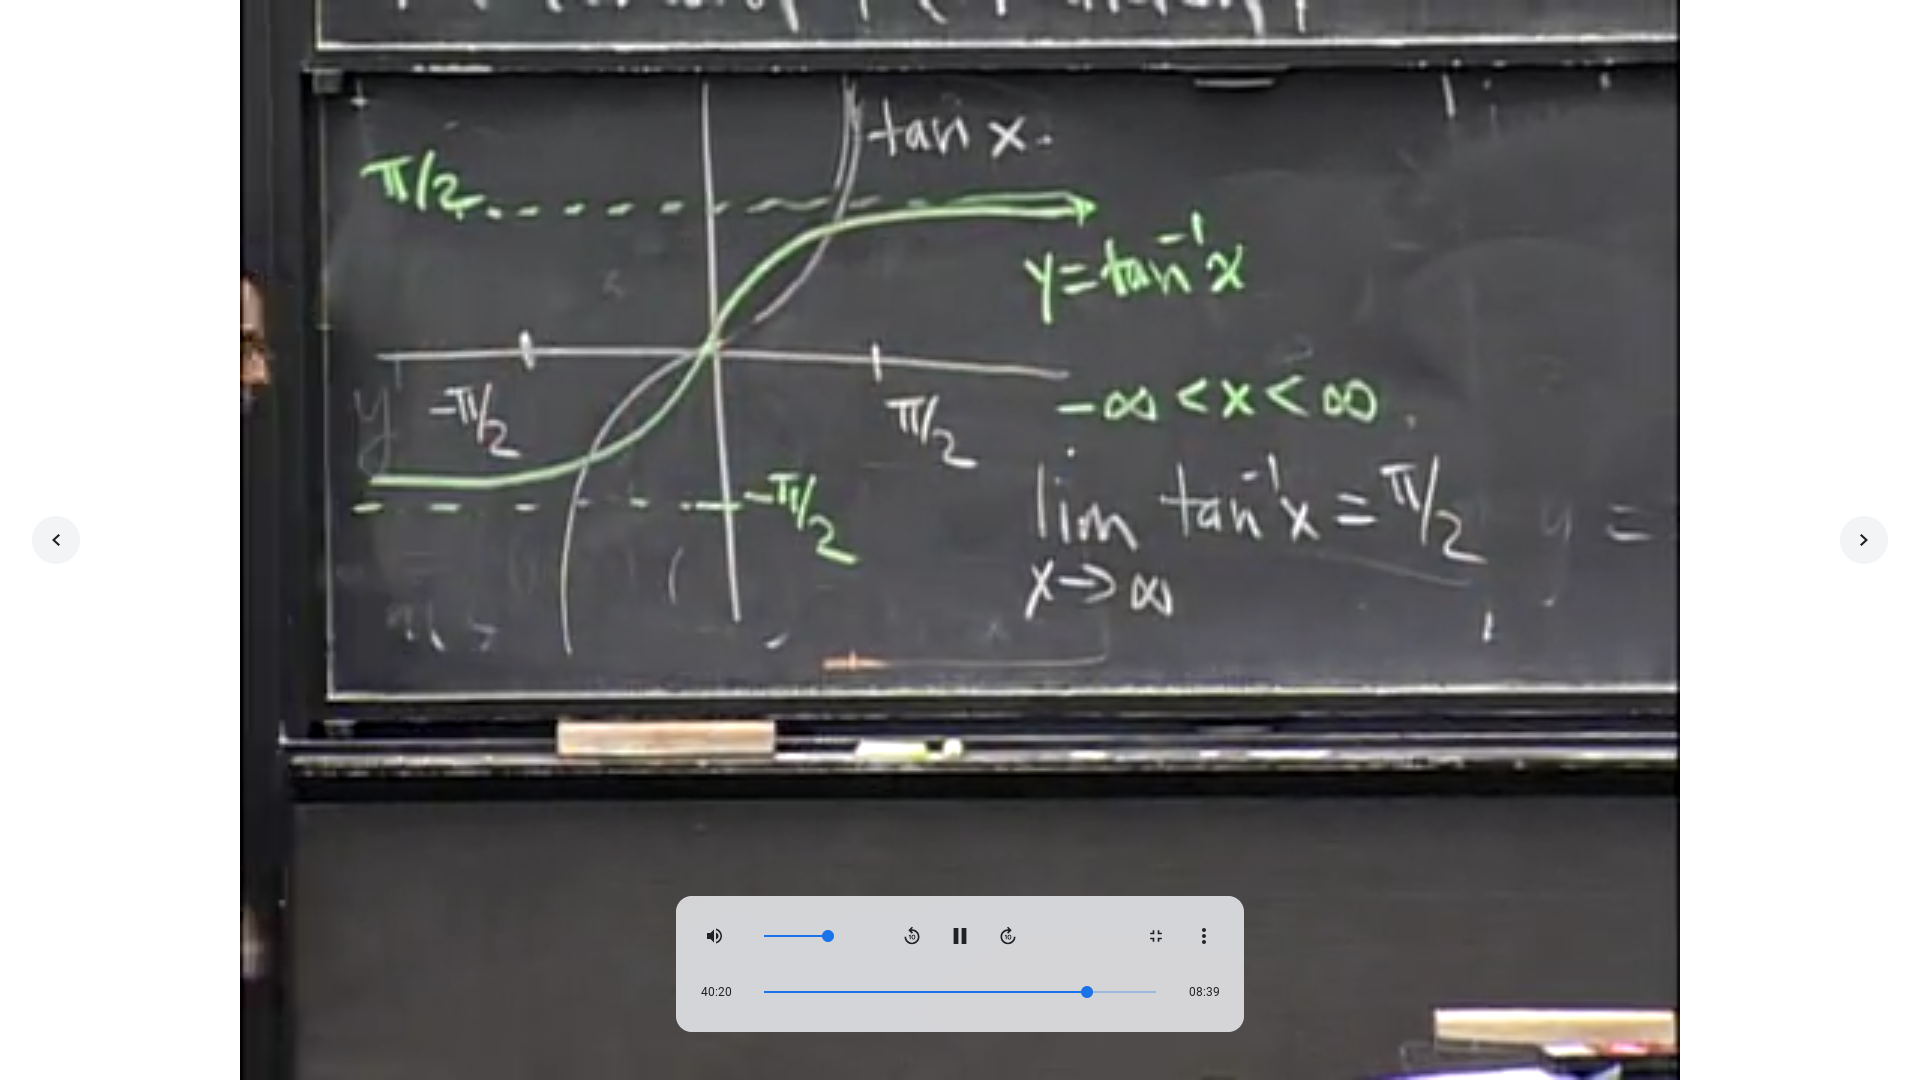 tan x.
π/2
y = tan⁻¹x
-π/2
π/2
-∞ < x < ∞
-π/2
lim tan⁻¹x = π/2
x→∞
y =
10
10
40:20
08:39